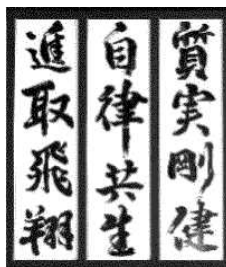 質実剛健
自律共生
進取飛翔